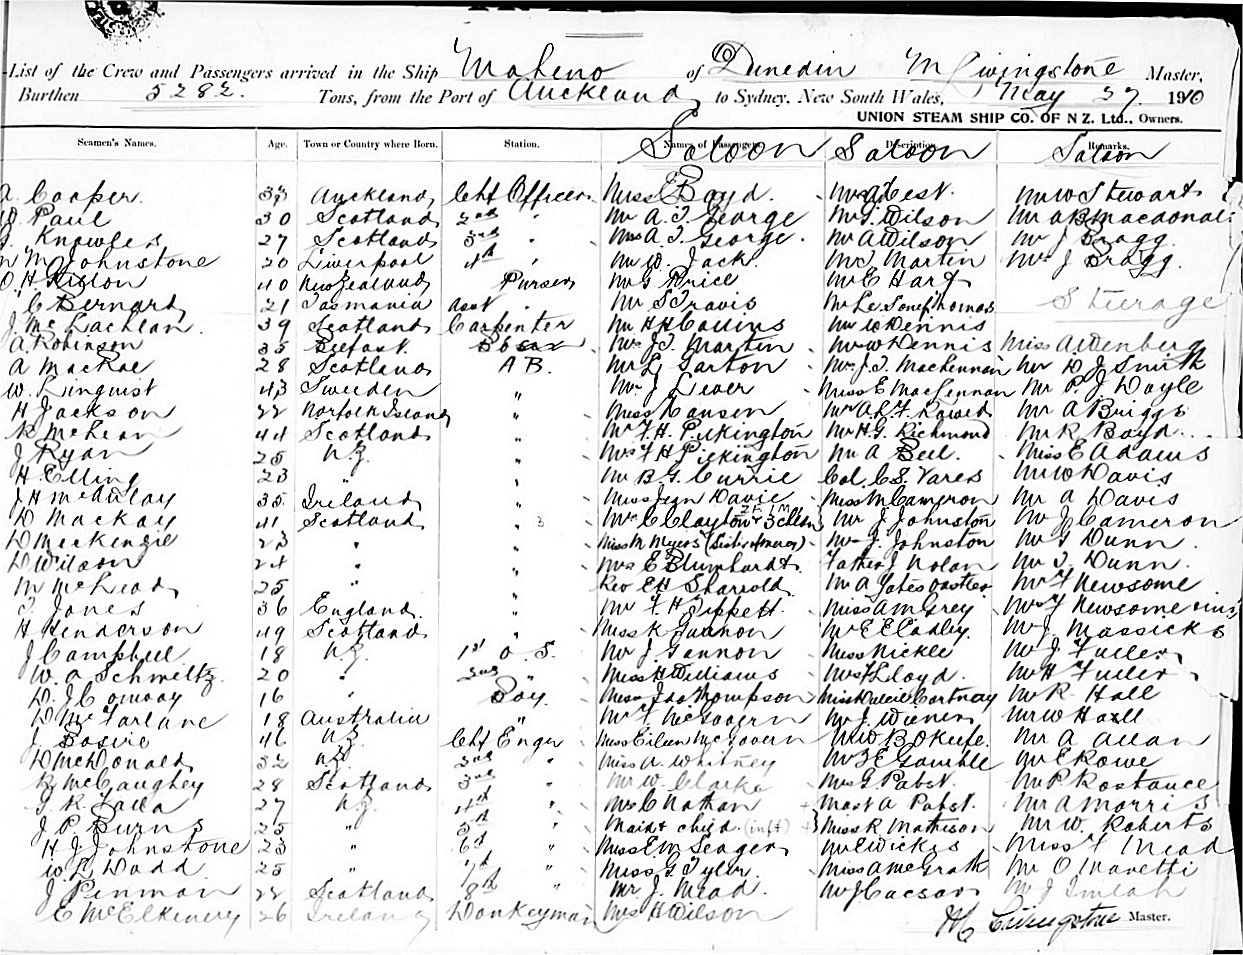 List of the Crew and Passengers arrived in the Ship Maheno of Dunedin M Livingstone Master,
Burthen 5282. Tons, from the Port of Auckland to Sydney, New South Wales, May 27 1910
UNION STEAM SHIP CO. OF N Z. Ltd., Owners.
Seamen's Names. Age. Town or Country where Born. Station. Names of Passengers. Description. Remarks.
Saloon Saloon Saloon
A. Cooper. Auckland Chf Officer Miss Boyd. West. Mr W Stewart
D. Paul 30 Scotland 2nd " Mr A. T. George Mr T. Wilson Mr Macdonald
G. Knowles 27 Scotland 3rd " Mrs A. T. George. Mr A Wilson Mr J Bragg.
Johnstone 20 Liverpool 4th " Mr W. Jack. Martin Mrs J Bragg.
40 New Zealand Purser Mr G Price Mr E Hart
C Bernard 21 Tasmania Asst " Mr S Travis Mr Thomas Steerage
J. McLachlan. 39 Scotland Carpenter Mr H H Collins Mr W Dennis
A. Robinson 35 Belfast. Mrs J. T. Martin Mrs W Dennis Miss
A MacRae 28 Scotland A B. Mr L. Garton Mr J. T. MacLennan Mr D J Smith
W. Linquist 43 Sweden " Mr J Lever Miss E MacLennan Mr P J Doyle
H Jackson 22 Norfolk Island " Miss Hansen Mr A Briggs
R McLean 44 Scotland " Mr F. H. Pilkington Mr H. G. Richmond Mr R Boyd
J Ryan 25 N Z. " Mrs F H Pilkington Mr A Bell. Miss E Adams
H. Elling 23 " " Mr B. G. Currie Col. C. S. Vares Mr W Davis
J H McAulay 35 Ireland " Miss Jean Davie Miss M Cameron Mr A Davis
D Mackay 41 Scotland " Mrs C Clayton & 3 chldn Mr J Johnston Mr J Cameron
D MacKenzie 23 " " Miss M Myers Mrs J. Johnston Mr G Dunn.
D Wilson 24 " " Mrs E Blumhardt. Father J Nolan Mr T. Dunn.
M McLeod 25 " " Rev E H Mr A Yates Mr F Newsome
T Jones 36 England " Mr F. H. Tippett. Miss A M Grey Mrs F Newsome
H Henderson 49 Scotland " Miss K Gannon Mr E E Mr J. Massicks
J Campbell 18 N. Z. 1st O. S. Mr J. Gannon Miss Nickle Mr J Fuller
W. A Schmeltz. 20 " 2nd " Miss H Williams Mrs F Lloyd. Mr H Fuller
D. J Conway 16 " Boy. Miss Thompson Miss Cortnay Mr R Hall
D McFarlane 18 Australia " Mr F McGovern Mr J. Wiener Mr W Hall
J. 46 N Z. Chf Enger Miss Eileen McGovern Mr W B OKeefe. Mr A Allan
D McDonald 32 N Z. 2nd " Miss A. Whitney Gamble Mr E Rowe
R McCaughey 28 Scotland 3rd " Mr W. Clarke Mrs G. Pabst. Mr P. Rostance
27 N Z. 4th " Mrs C Nathan Mast A Pabst. Mr A Morris
J. P. Burns 25 " 5th " Maid & child (inft) Miss R Matheson Mr W. Roberts
H J Johnstone 23 " 6th " Miss E M Seager Mr E Wickes Miss F Mead
W. L Dodd. 25 " 7th " Miss G Tyler. Miss A McGrath Mr O Maretti
J Penman 22 Scotland 8th " Mr J. Mead. Mr J Caesar Mr J Imlah
E McElkinery 26 Ireland Donkeyman Mrs H Wilson
M Livingstone Master.